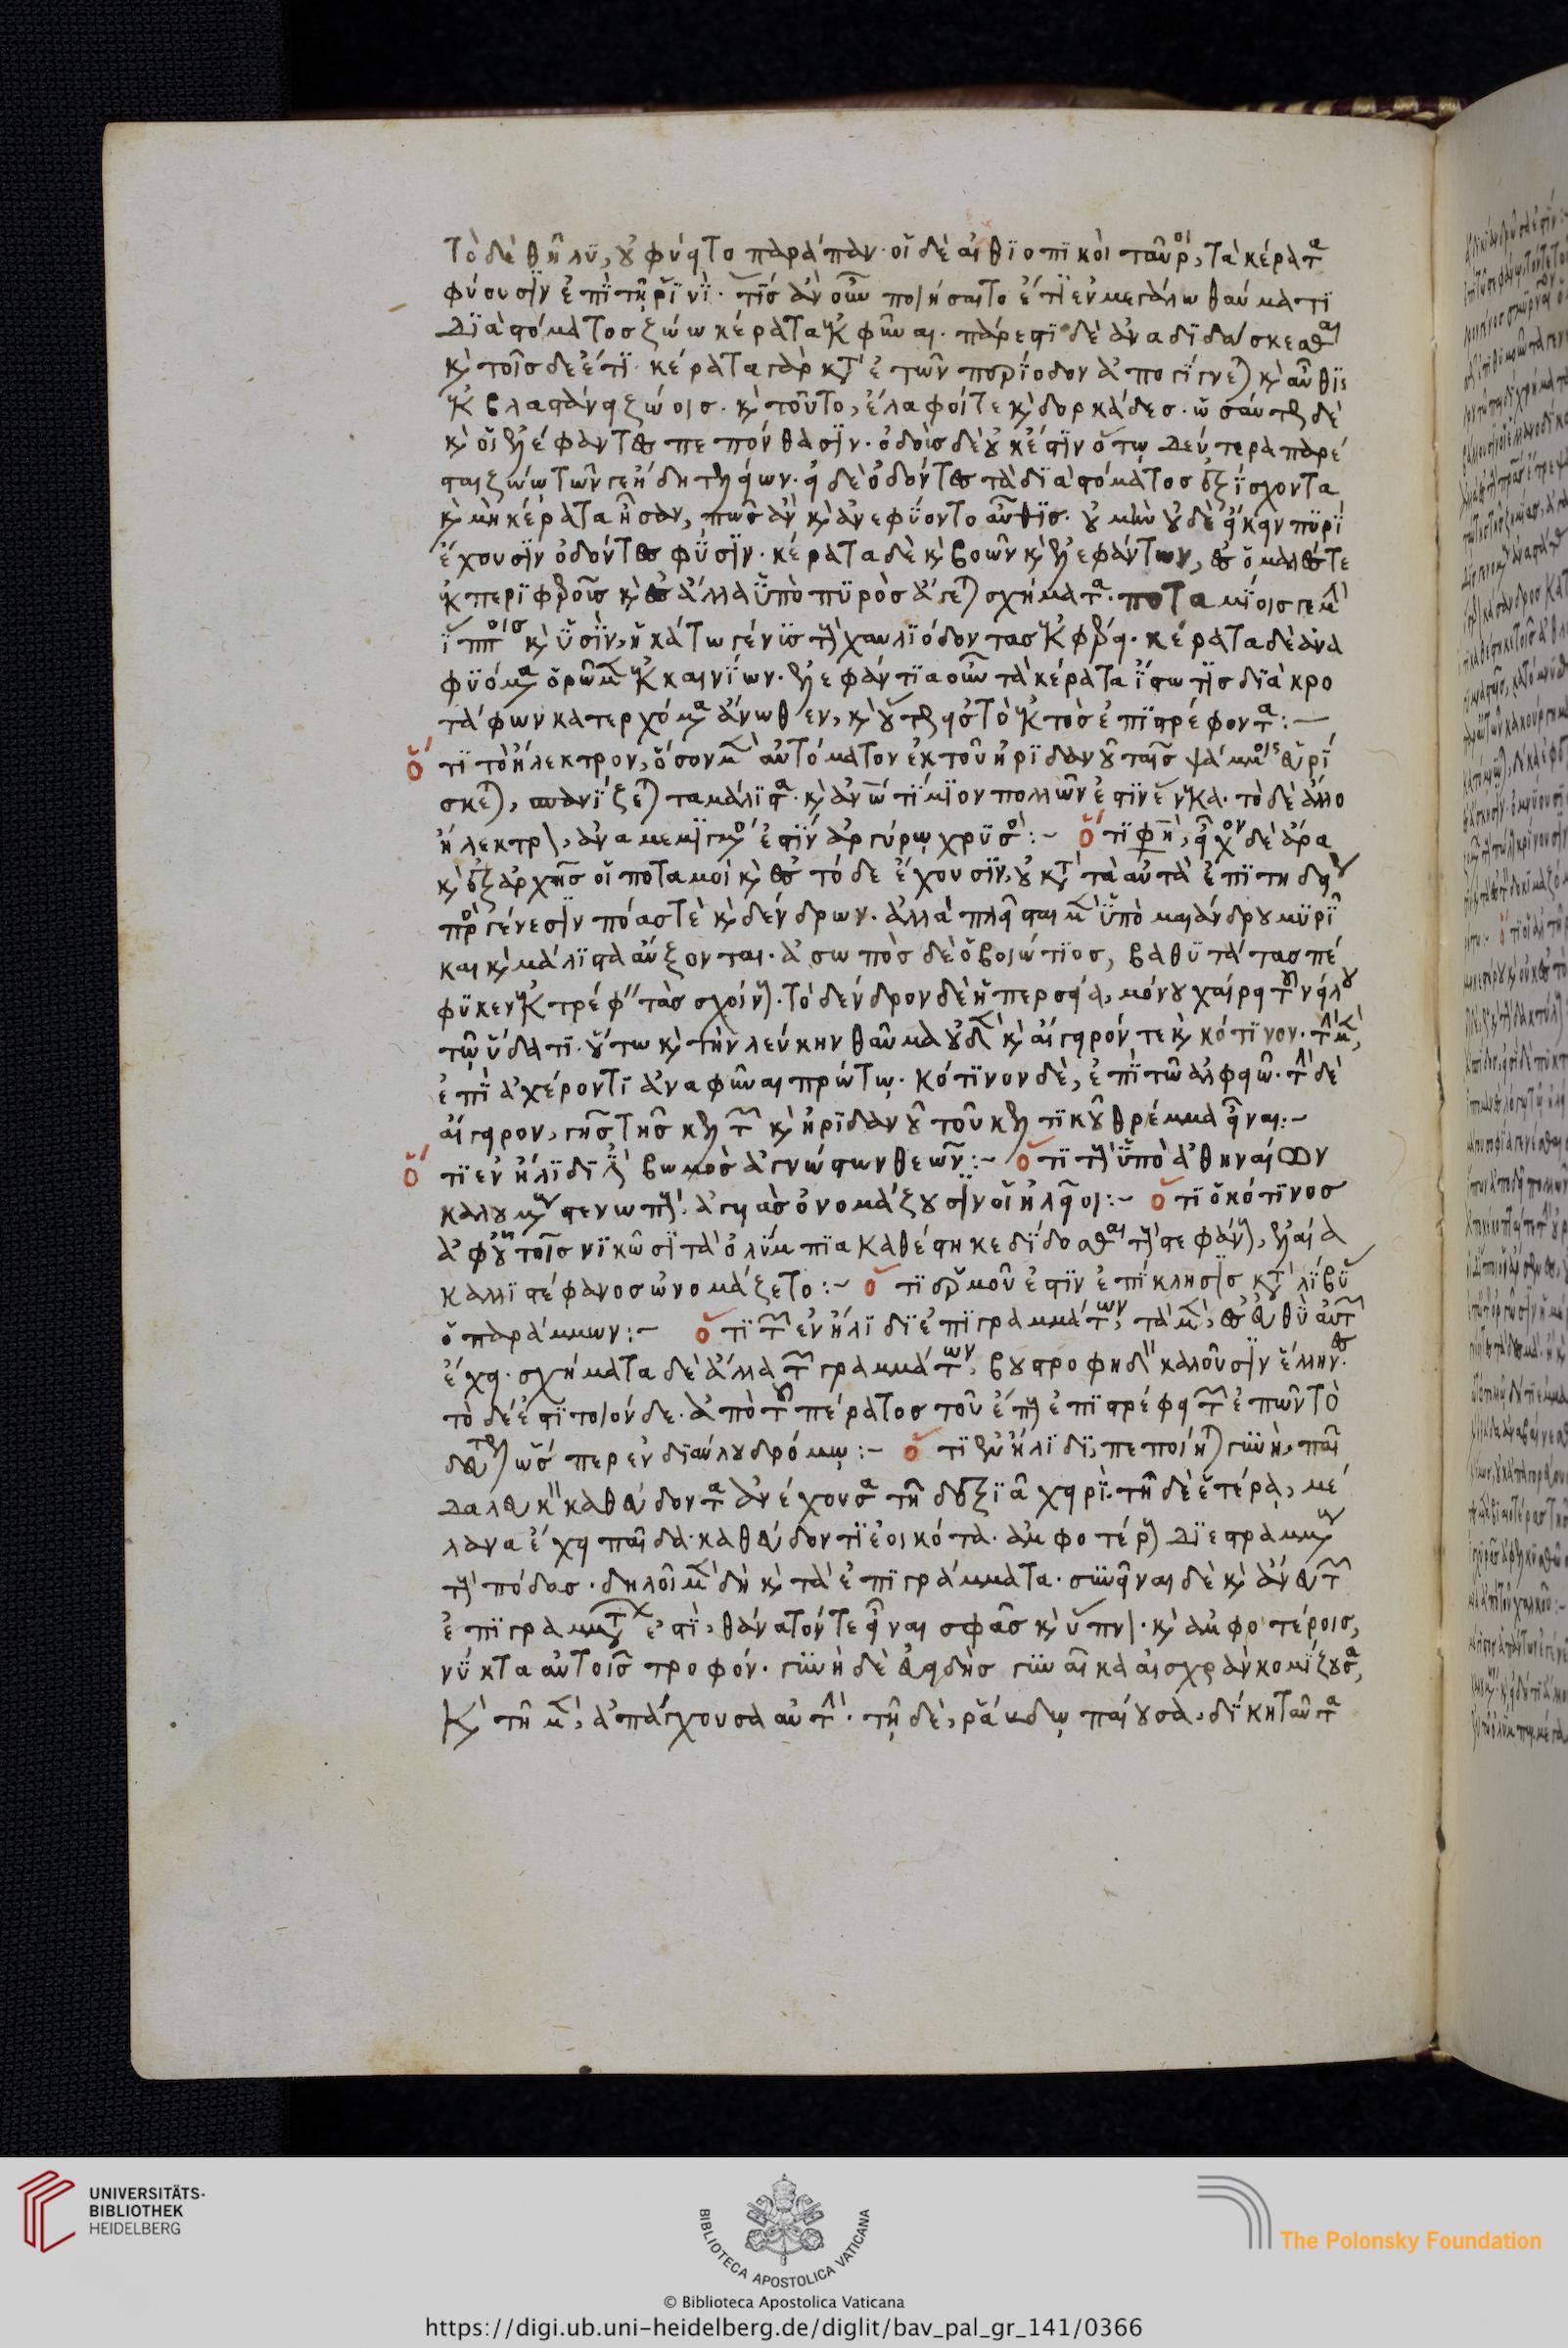 τὸ δὲ θῆλυ, οὐ φύει τὸ παράπαν· οἱ δὲ αἰθιοπικοὶ ταῦροι, τὰ κέρατα
φύουσιν ἐπὶ τῇ ῥινί· τίς ἂν οὖν ποιήσαιτο ἔτι ἐν μεγάλω θαύματι
διὰ στόματος ζώω κέρατα ἐκφῦναι· πάρεστι δὲ ἀναδιδάσκεσθαι
καὶ τοῖσδε ἔτι· κέρατα γὰρ κατὰ ἐτῶν περίοδον ἀπογίγνεται καὶ αὖθις
ἐκβλαστάνει ζώοις· καὶ τοῦτο, ἔλαφοί τε καὶ δορκάδες· ὡσαύτως δὲ
καὶ οἱ ἐλέφαντες πεπόνθασιν· ὀδοὺς δὲ οὐκ ἔστιν ὅτω δεύτερα παρέ
σται ζώω τῶν γε ἤδη τελείων· εἰ δὲ ὀδόντες τὰ διὰ στόματος ἐξίσχοντα
καὶ μὴ κέρατα ἦσαν, πῶς ἂν καὶ ἀνεφύοντο αὖθις· οὐ μὴν οὐδὲ εἴκειν πυρὶ
ἔχουσιν ὀδόντες φύσιν· κέρατα δὲ καὶ βοῶν καὶ ἐλεφάντων, ἐς ὁμαλές τε
ἐκ περιφεροῦς καὶ ἐς ἄλλα ὑπὸ πυρὸς ἄγεται σχήματα· ποταμίοις γε μὴν
ἵπποις καὶ ὑσὶν, ἡ κάτω γένυς τοὺς χαυλιόδοντας ἐκφέρει· κέρατα δὲ ἀνα
φυόμενα ὁρῶμεν ἐκ γενύων· ἐλέφαντι οὖν τὰ κέρατα ἴστω τις διὰ κρο
τάφων κατερχόμενα ἄνωθεν, καὶ οὕτως ἐς τὸ ἐκτὸς ἐπιστρέφοντα:—
ὅτι τὸ ἤλεκτρον, ὅσον μὲν αὐτόματον ἐκ τοῦ ἠριδανοῦ ταῖς ψάμμοις εὑρί
σκεται, σπανίζεται τὰ μάλιστα· καὶ ἀνθρώπω τίμιον πολλῶν ἐστὶν ἕνεκα· τὸ δὲ ἄλλο
ἤλεκτρον, ἀναμεμιγμένος ἐστὶν ἀργύρω χρυσός:~ ὅτι φησὶν, εἶχον δὲ ἄρα
καὶ ἐξ ἀρχῆς οἱ ποταμοὶ καὶ ἐς τόδε ἔχουσιν, οὐ κατὰ τὰ αὐτὰ ἐπιτηδείως
πρὸς γένεσιν πόας τὲ καὶ δένδρων· ἀλλὰ πλεῖσται μὲν ὑπὸ μαιάνδρου μυρῖ
και καὶ μάλιστα αὔξονται· ἀσωπὸς δὲ ὁ βοιώτιος, βαθυτάτας πέ
φυκεν ἐκτρέφειν τὰς σχοίνους· τὸ δένδρον δὲ ἡ περσεία, μόνου χαίρει τοῦ νείλου
τῶ ὕδατι· οὕτω καὶ τὴν λεύκην θαῦμα οὐδὲν καὶ αἴγειρόν τε καὶ κότινον· τὴν μὲν,
ἐπὶ ἀχέροντι ἀναφῦναι πρώτω· κότινον δὲ, ἐπὶ τῶ ἀλφειῶ· τὴν δὲ
αἴγειρον, γῆς τῆς κελτῶν καὶ ἠριδανοῦ τοῦ κελτικοῦ θρέμμα εἶναι:~
ὅτι ἐν ἤλιδι ἦν βωμὸς ἀγνώστων θεῶν:~ ὅτι τοὺς ὑπὸ ἀθηναίων
καλουμένους στενωποὺς, ἀγυιὰς ὀνομάζουσιν οἱ ἠλεῖοι:~ ὅτι ὁ κότινος
ἀφ' οὗ τοῖς νικῶσι τὰ ὀλύμπια καθέστηκε δίδοσθαι τοὺς στεφάνους, ἐλαία
καλλιστέφανος ὠνομάζετο:~ ὅτι ἑρμοῦ ἐστιν ἐπίκλησις κατὰ λιβύην
ὁ παράμμων:~ ὅτι τῶν ἐν ἤλιδι ἐπιγραμμάτων, τὰ μὲν, ἐς εὐθὺ αὐτῶν
ἔχει· σχήματα δὲ ἄλλα τῶν γραμμάτων, βουστροφηδὸν καλοῦσιν ἕλληνες·
τὸ δέ ἐστι τοιόνδε· ἀπὸ τοῦ πέρατος τοῦ ἔπους ἐπιστρέφει τῶν ἐπῶν τὸ
δεύτερον ὥσπερ ἐν διαύλου δρόμω:~ ὅτι ἐν ἤλιδι, πεποίηται γυνὴ, παῖ
δα λευκὸν καθεύδοντα ἀνέχουσα τῆ δεξιᾶ χειρί· τῆ δὲ ἑτέρα, μέ
λανα ἔχει παῖδα καθεύδοντι ἐοικότα· ἀμφοτέρους διεστραμμένους
τοὺς πόδας· δηλοῖ μὲν δὴ καὶ τὰ ἐπιγράμματα· συνεῖναι δὲ καὶ ἄνευ τῶν
ἐπιγραμμάτων ἔστι, θάνατόν τε εἶναι σφᾶς καὶ ὕπνον· καὶ ἀμφοτέροις,
νύκτα αὐτοῖς τροφόν· γυνὴ δὲ εὐειδὴς γυναῖκα αἰσχρὰν κομίζουσα,
καὶ τῆ μὲν, ἀπάγχουσα αὐτὴν· τῆ δὲ, ῥάβδω παίουσα, δίκη ταῦτα
UNIVERSITÄTS-
BIBLIOTHEK
HEIDELBERG
BIBLIOTECA APOSTOLICA VATICANA
The Polonsky Foundation
© Biblioteca Apostolica Vaticana
https://digi.ub.uni-heidelberg.de/diglit/bav_pal_gr_141/0366